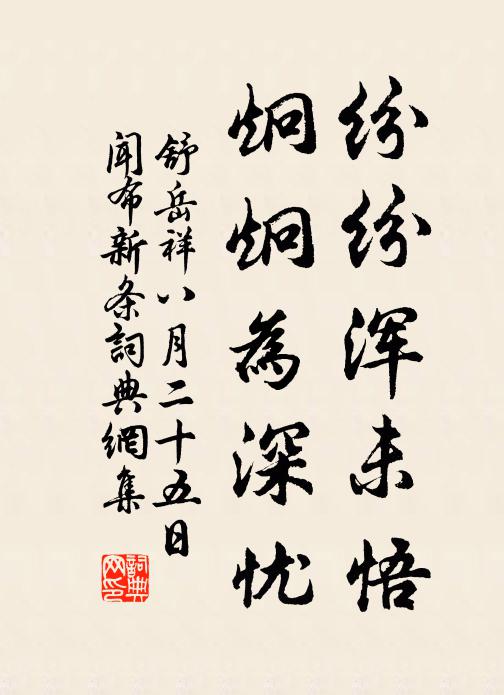 纷纷浑未悟
炯炯為深忧
舒岳祥八月二十五日
闻布新条詞典網集
詞典
网印